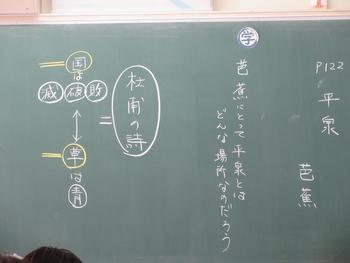 P122 平泉 芭蕉
学
芭蕉にとって平泉とは
どんな場所なのだろう
杜甫の詩
=
国は
滅 破 敗
草は
青